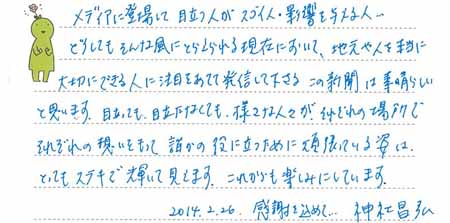 メディアに登場して目立つ人がスゴイ人・影響を与える人…
どうしてもそんな風にとらえられる現在において、地元や人を本当に
大切にできる人に注目をあてて発信して下さるこの新聞は素晴らしい
と思います。目立っても、目立たなくても、様々な人々がそれぞれの場所で
それぞれの想いをもって誰かの役に立つために頑張っている姿は、
とってもステキで輝いて見えます。これからも楽しみにしています。
2014.2.26. 感謝を込めて… 神社昌弘